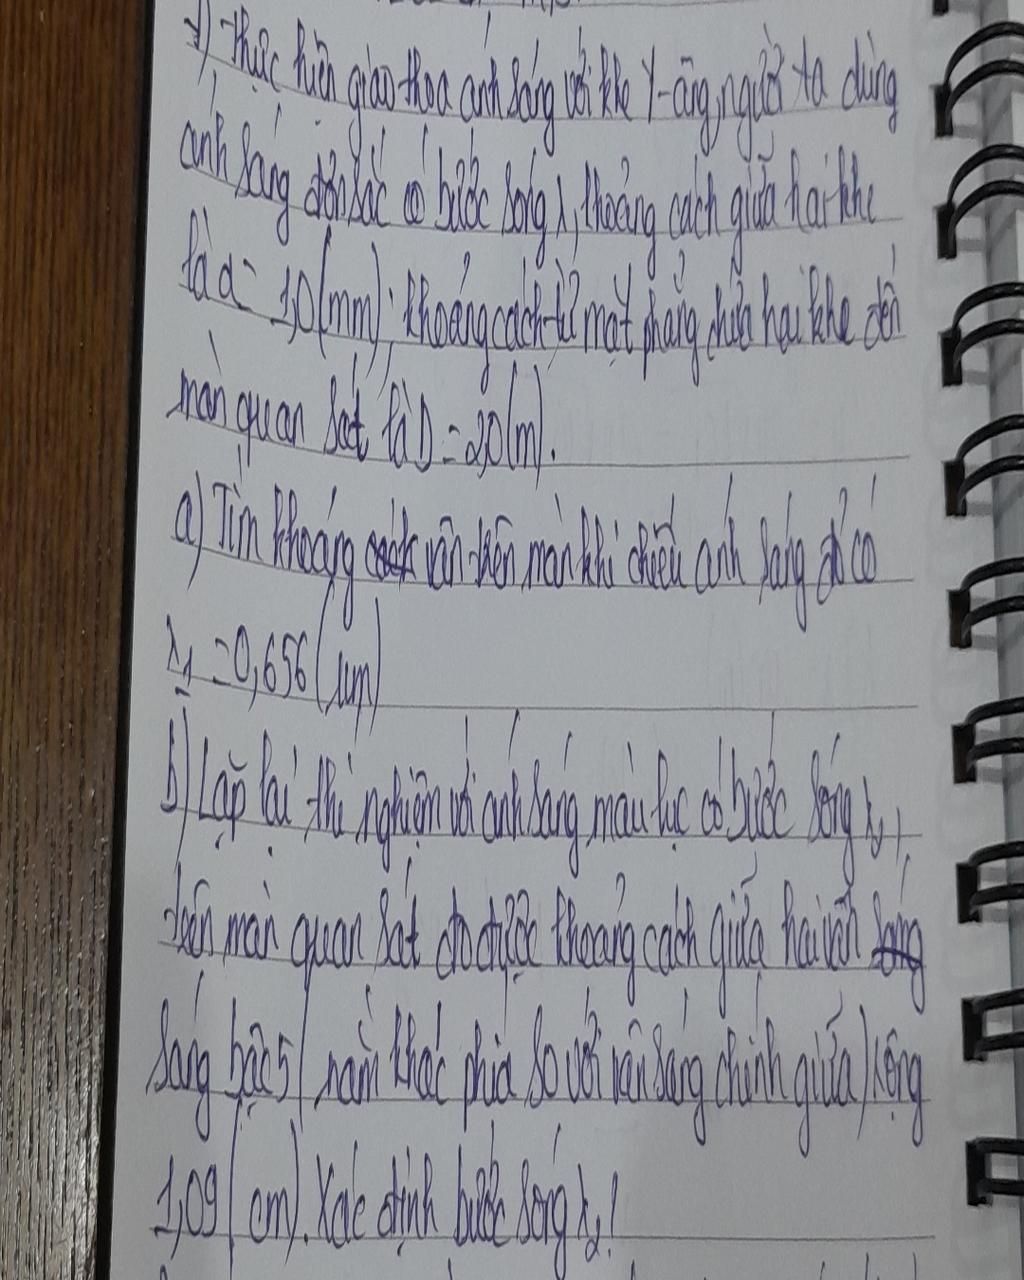 1) Thực hiện giao thoa ánh sáng với khe Y-âng, người ta dùng
ánh sáng đơn sắc có bước sóng λ, khoảng cách giữa hai khe
là a = 1,0 (mm); khoảng cách từ mặt phẳng chứa hai khe đến
màn quan sát là D = 2,0 (m).
a) Tìm khoảng vân trên màn khi chiếu ánh sáng đỏ có
λ1 = 0,656 (μm)
b) Lặp lại thí nghiệm với ánh sáng màu lục có bước sóng λ2,
trên màn quan sát đo được khoảng cách giữa hai vân
sáng bậc 5 (nằm khác phía so với vân sáng chính giữa) rộng
1,09 (cm). Xác định bước sóng λ2!